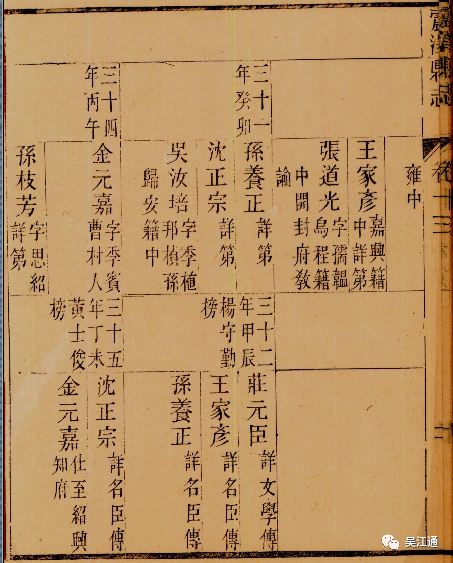 震澤縣志
卷十三
雍中
王家彥
嘉興籍
中詳第
張道光
字孺韞
烏程籍
中開封府教
諭
三十一
年癸卯
孫養正
詳第
沈正宗
詳第
吳汝培
字季植
邦楨孫
歸安籍中
三十四
年丙午
金元嘉
字季賓
曹村人
孫枝芳
字思紹
詳第
三十二
年甲辰
楊守勤
榜
莊元臣
詳文學傳
王家彥
詳名臣傳
孫養正
詳名臣傳
三十五
年丁未
黃士俊
榜
沈正宗
詳名臣傳
金元嘉
仕至紹興
知府
吴江通